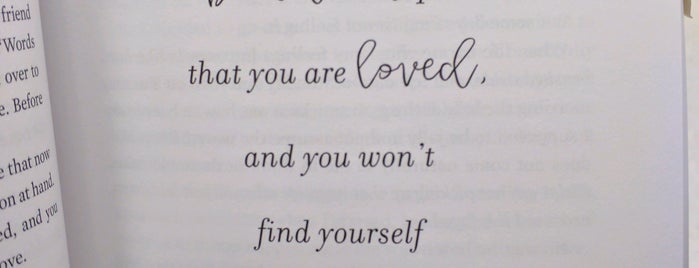 friend
"Words
over to
e. Before
e that now
on at hand.
ed, and you
ove.
that you are loved,
and you won't
find yourself